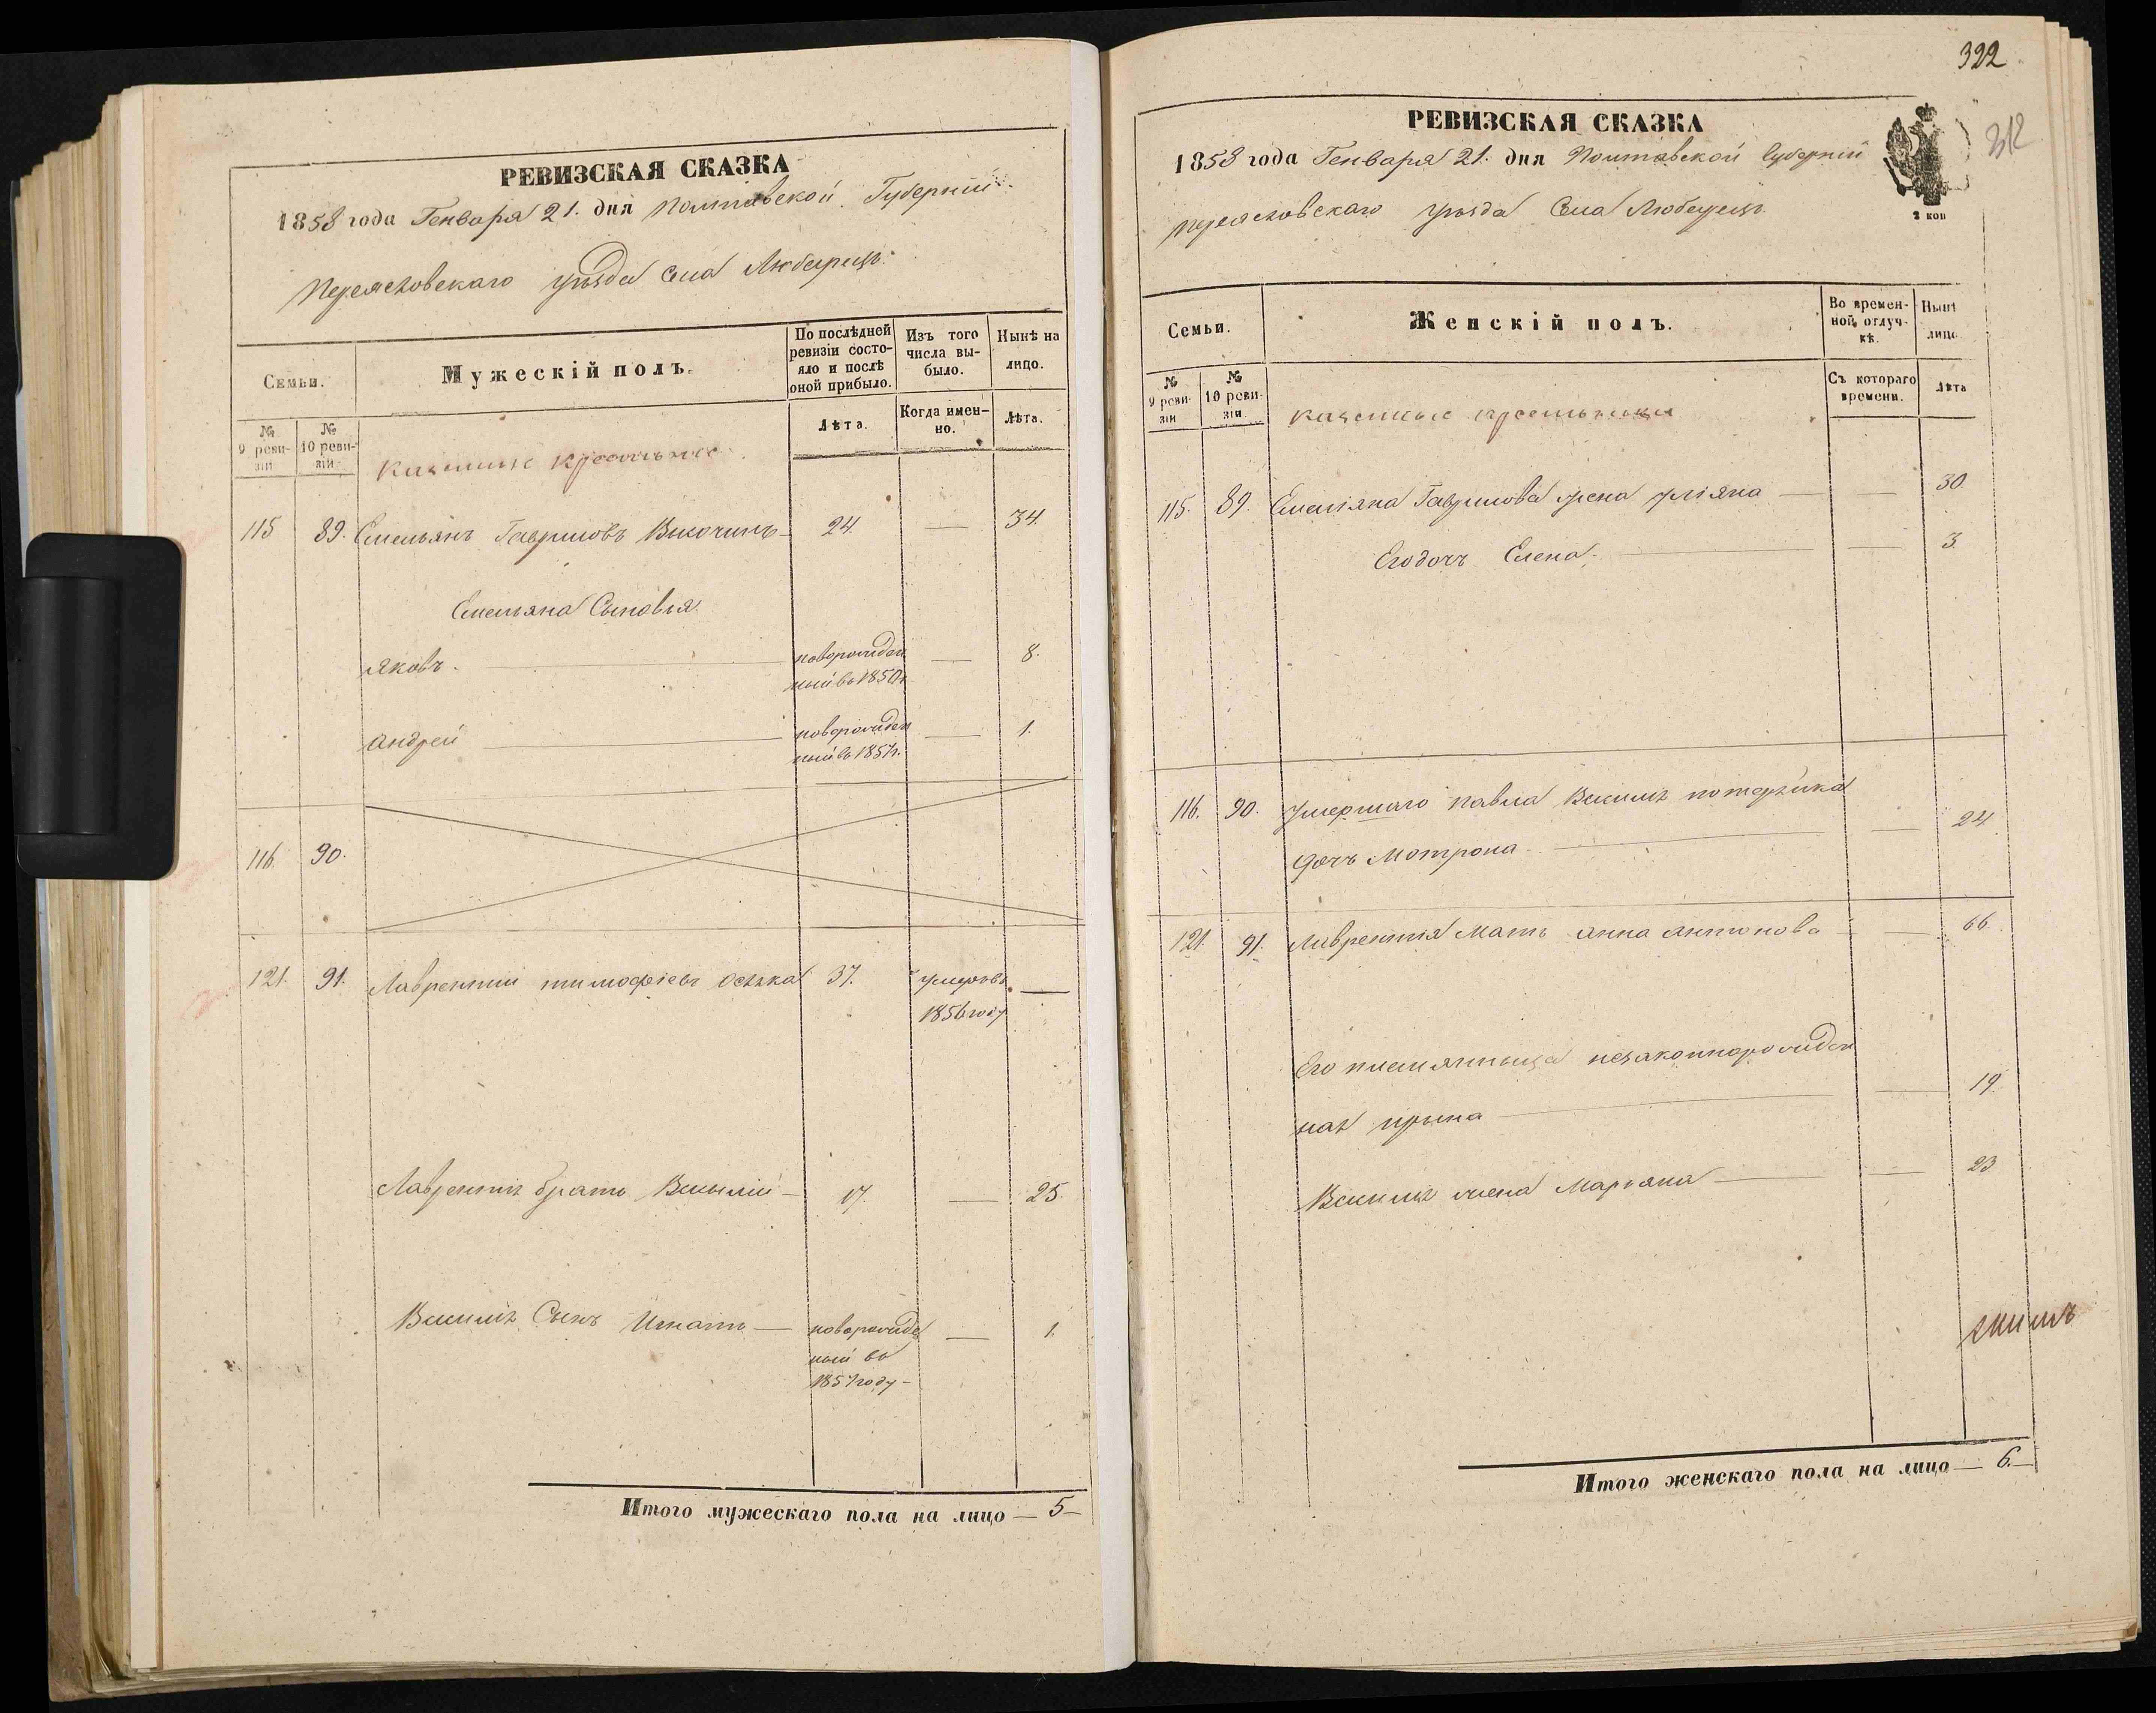 РЕВИЗСКАЯ СКАЗКА
1858 года Генваря 21. дня Полтавской Губерніи
Переясловскаго уѣзда Села Любарецъ
Семьи.
Мужескій полъ.
По послѣдней ревизіи состояло и послѣ оной прибыло.
Изъ того числа выбыло.
Нынѣ на лицо.
№ 9 ревизіи
№ 10 ревизіи
Лѣта.
Когда именно.
Лѣта.
Казенные крестьяне
115 89. Емельянъ Гавриловъ 24. — 34.
Емельяна Сыновья
Яковъ. — новорожден — 8.
ный въ 1850 г.
Андрей — новорожден — 1.
ный въ 1857 г.
116 90.
121. 91. Лаврентій Тимофіевъ 37. умеръ въ —
1856 году
Лаврентія братъ Василій — 17. — 25.
Василія Сынъ Игнатъ — новорожде — 1.
ный въ
1857 году —
Итого мужескаго пола на лицо — 5 —
322
312
РЕВИЗСКАЯ СКАЗКА
1858 года Генваря 21. дня Полтавской Губерніи
2 коп
Переясловскаго уѣзда Села Любарецъ
Семьи.
Женскій полъ.
Во временной отлучкѣ.
Нынѣ лицо
№ 9 ревизіи
№ 10 ревизіи
Съ котораго времени.
Лѣта
Казенные крестьянки
115. 89. Емельяна Гаврилова жена Уліяна — — 30
Его дочь Елена. — — 3
116. 90. Умершаго Павла Василія
дочь Мотрона — — 24
121. 91. Лаврентія Мать Анна Антонова — 66
Его племянныца незаконнорожден
ная Ирына — — 19
Василія жена Маріяна — — 23
Итого женскаго пола на лицо — 6. —